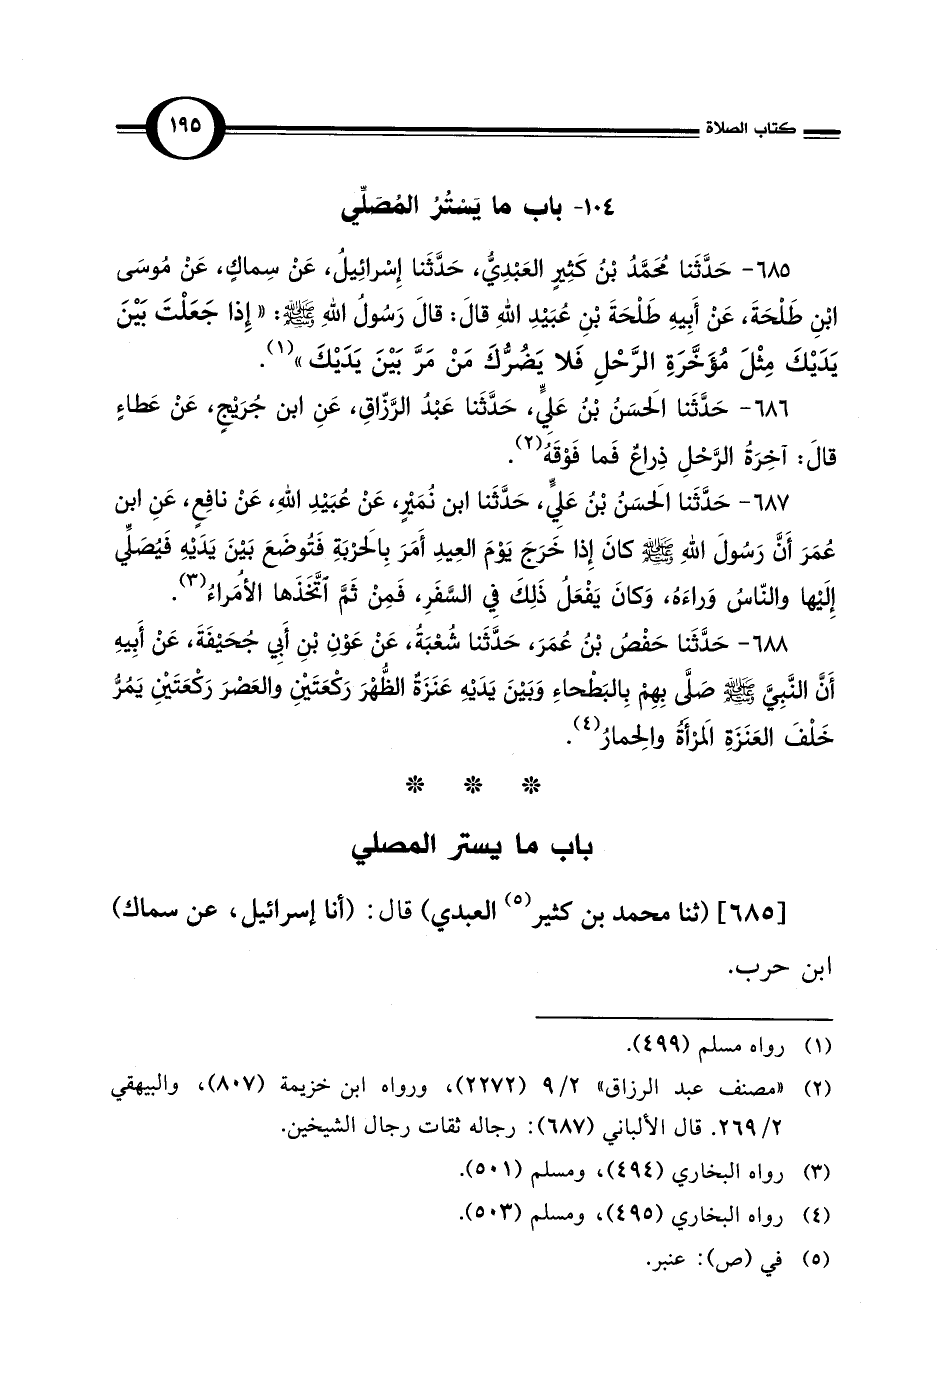 كتاب الصلاة ١٩٥
١٠٤- باب ما يَسْتُرُ المُصَلِّي
٦٨٥- حَدَّثَنا مُحَمَّدُ بْنُ كَثِيرٍ العَبْدِيُّ، حَدَّثَنا إِسْرائِيلُ، عَنْ سِماكٍ، عَنْ مُوسَى
ابْنِ طَلْحَةَ، عَنْ أَبِيهِ طَلْحَةَ بْنِ عُبَيْدِ اللهِ قالَ: قالَ رَسُولُ اللهِ ﷺ: « إِذا جَعَلْتَ بَيْنَ
يَدَيْكَ مِثْلَ مُؤَخَّرَةِ الرَّحْلِ فَلا يَضُرُّكَ مَنْ مَرَّ بَيْنَ يَدَيْكَ »(١).
٦٨٦- حَدَّثَنا الحَسَنُ بْنُ عَلِيٍّ، حَدَّثَنا عَبْدُ الرَّزّاقِ، عَنِ ابن جُرَيْجٍ، عَنْ عَطاءٍ
قالَ: آخِرَةُ الرَّحْلِ ذِراعٌ فَما فَوْقَهُ(٢).
٦٨٧- حَدَّثَنا الحَسَنُ بْنُ عَلِيٍّ، حَدَّثَنا ابن نُمَيْرٍ، عَنْ عُبَيْدِ اللهِ، عَنْ نافِعٍ، عَنِ ابن
عُمَرَ أَنَّ رَسُولَ اللهِ ﷺ كانَ إِذا خَرَجَ يَوْمَ العِيدِ أَمَرَ بِالحَرْبَةِ فَتُوضَعَ بَيْنَ يَدَيْهِ فَيُصَلِّي
إِلَيْها والنّاسُ وَراءَهُ، وَكانَ يَفْعَلُ ذَلِكَ فِي السَّفَرِ، فَمِنْ ثَمَّ اتَّخَذَها الأُمَراءُ(٣).
٦٨٨- حَدَّثَنا حَفْصُ بْنُ عُمَرَ، حَدَّثَنا شُعْبَةُ، عَنْ عَوْنِ بْنِ أَبِي جُحَيْفَةَ، عَنْ أَبِيهِ
أَنَّ النَّبِيَّ ﷺ صَلَّى بِهِمْ بِالبَطْحاءِ وَبَيْنَ يَدَيْهِ عَنَزَةٌ الظُّهْرَ رَكْعَتَيْنِ والعَصْرَ رَكْعَتَيْنِ يَمُرُّ
خَلْفَ العَنَزَةِ المَرْأَةُ والحِمارُ(٤).
* * *
باب ما يستر المصلي
[٦٨٥] (ثنا محمد بن كثير(٥) العبدي) قال: (أنا إسرائيل، عن سماك)
ابن حرب.
(١) رواه مسلم (٤٩٩).
(٢) «مصنف عبد الرزاق» ٢/ ٩ (٢٢٧٢)، ورواه ابن خزيمة (٨٠٧)، والبيهقي
٢/ ٢٦٩. قال الألباني (٦٨٧): رجاله ثقات رجال الشيخين.
(٣) رواه البخاري (٤٩٤)، ومسلم (٥٠١).
(٤) رواه البخاري (٤٩٥)، ومسلم (٥٠٣).
(٥) في (ص): عنبر.